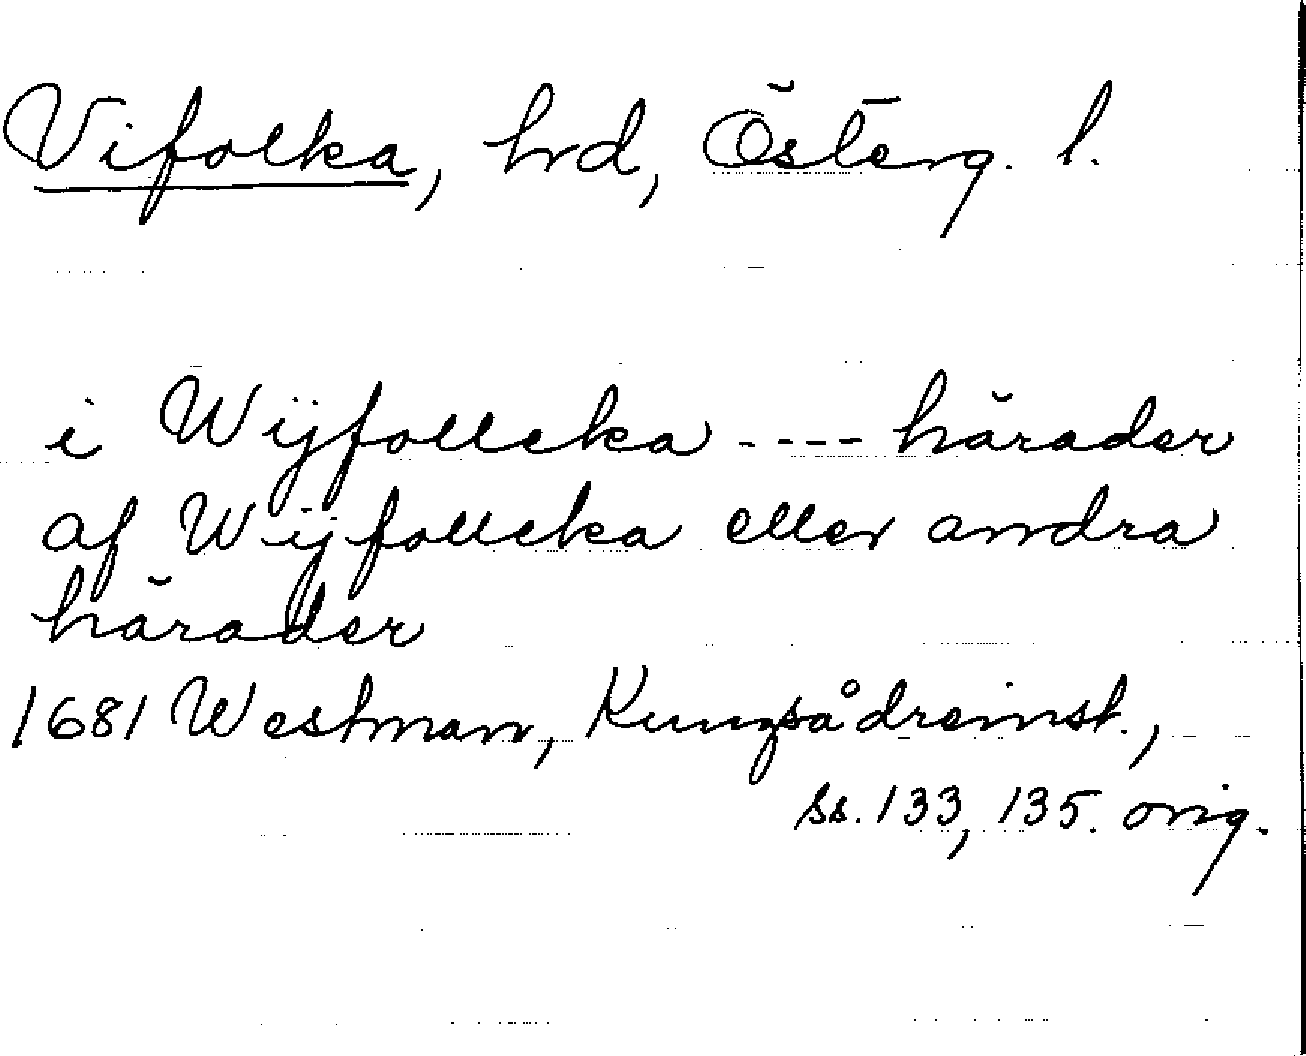 Vifolka, hrd, Österg. l.
i Wÿfollcka ---- härader
af Wÿfollcka eller andra
härader
1681 Westman, Kungsådreinst.,
ss. 133, 135. orig.